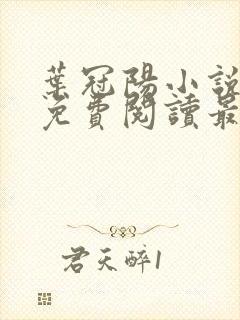 葉冠陽小說
免費閱讀最
君天醉1